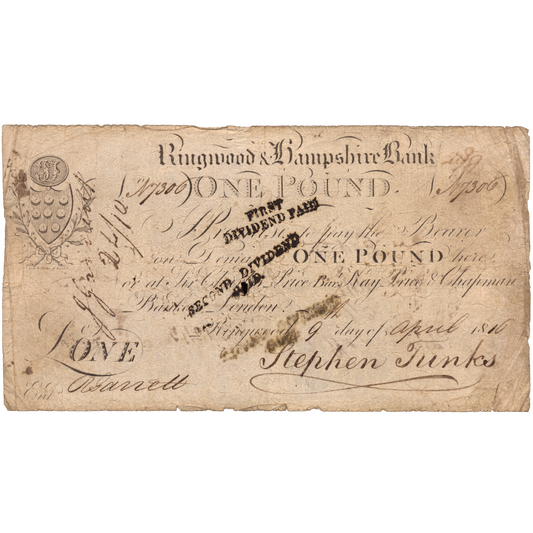 Ringwood & Hampshire Bank
(No 7306) ONE POUND. (No 7306)
I Promise to pay the Bearer
on Demand ONE POUND here
or at Sir Price Bart. Kay, Price & Chapman
Bankers London.
Ringwood 9 day of April 1816
£ONE
Stephen Tunks
Entd
FIRST
DIVIDEND PAID
SECOND DIVIDEND
PAID.